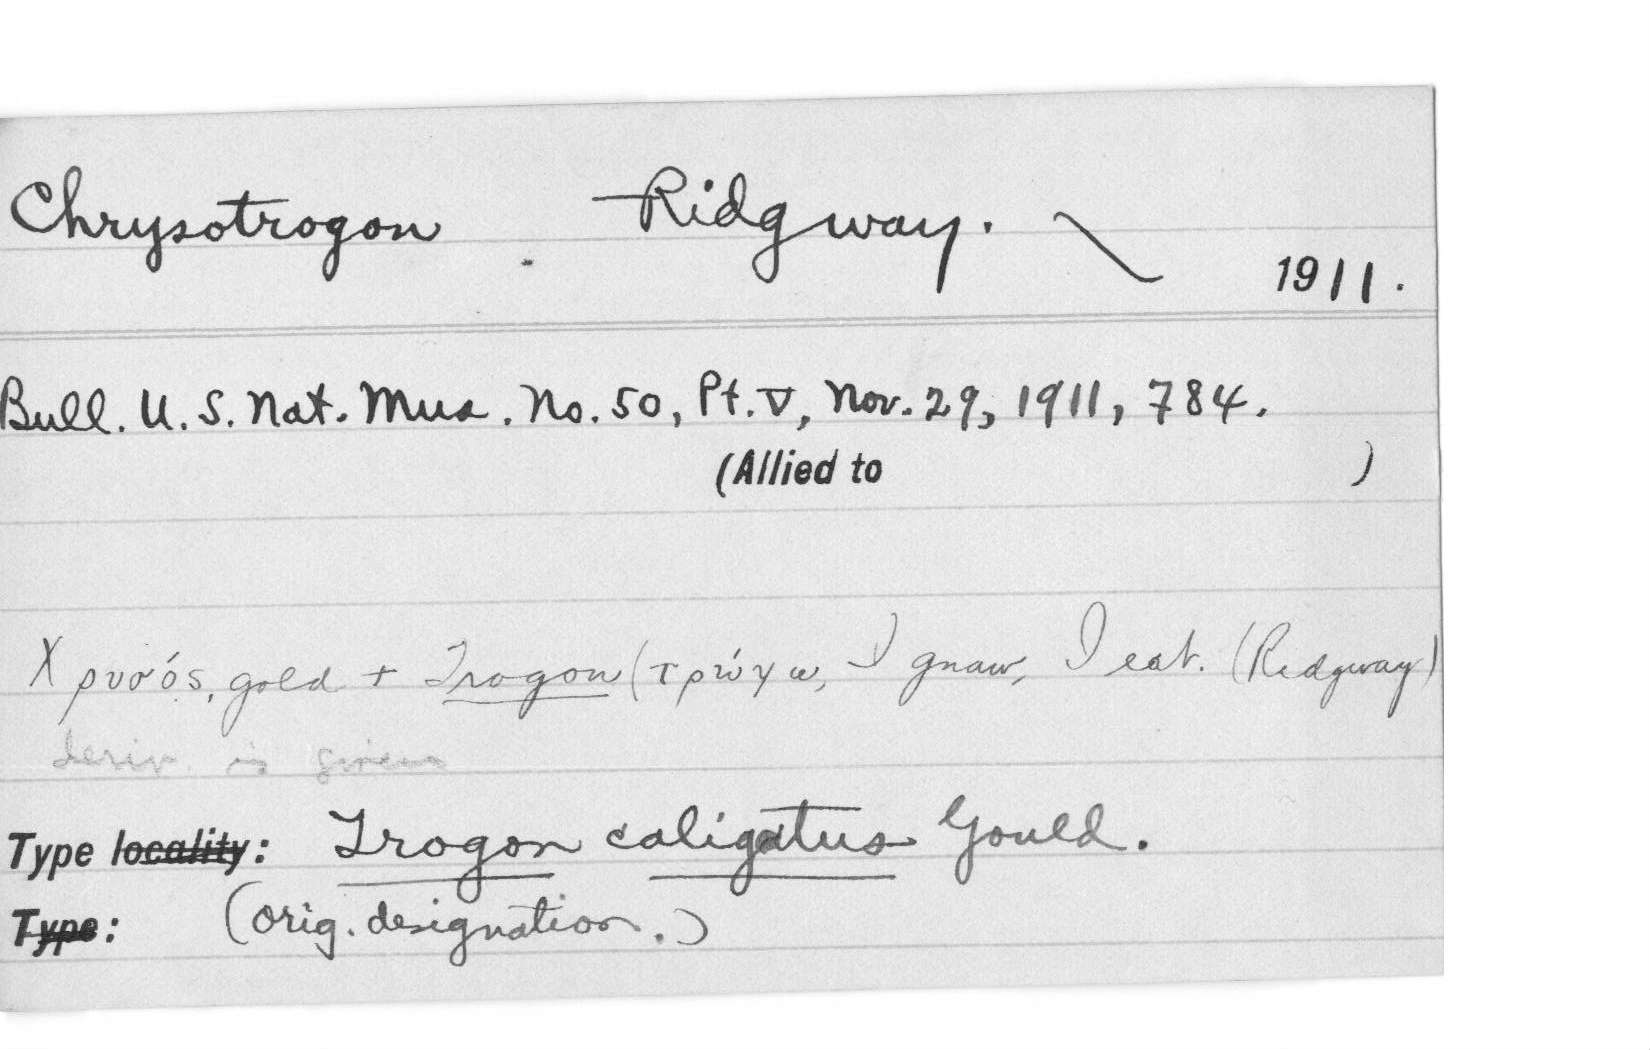 Chrysotrogon Ridgway.
1911.
Bull. U.S. Nat. Mus. No. 50, Pt. V, Nov. 29, 1911, 784.
(Allied to )
Χρυσός, gold + Trogon (τρώγω, I gnaw, I eat. (Ridgway)
deriv. is given
Type locality: Trogon caligatus Gould.
Type: (orig. designation.)